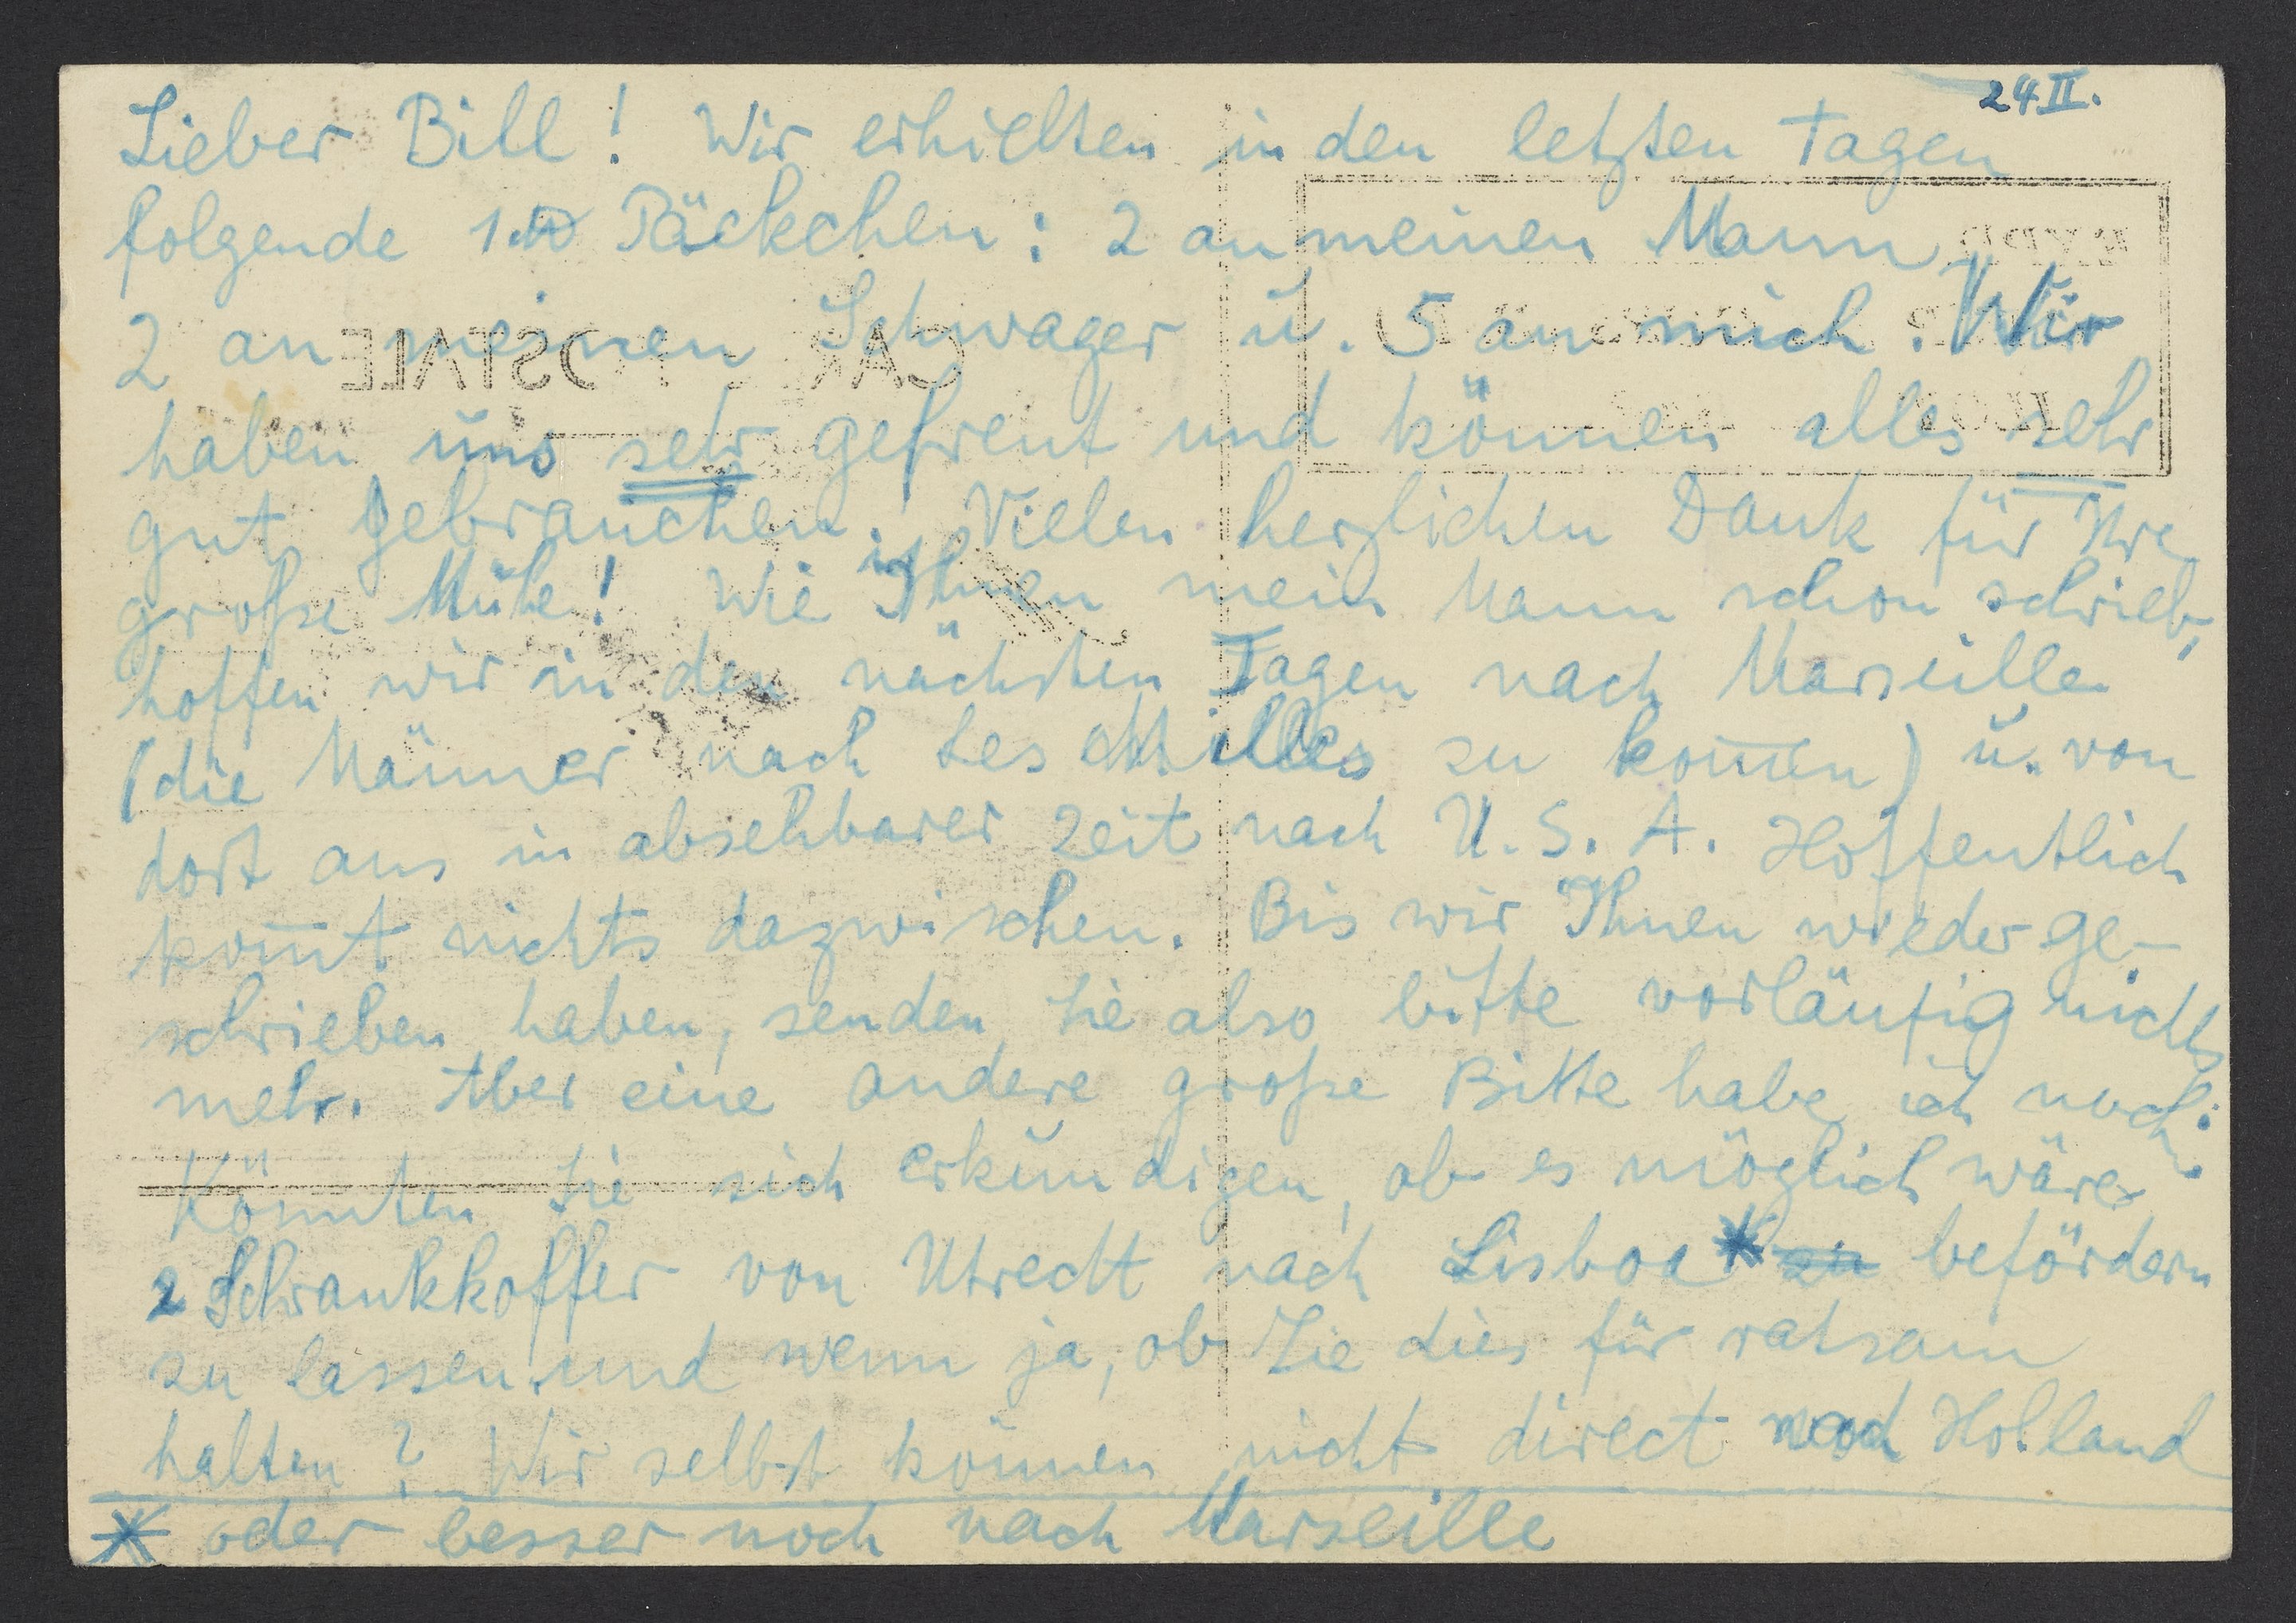 24 II.
Lieber Bill! Wir erhielten in den letzten Tagen
folgende 1 ℔ Päckchen: 2 an meinen Mann,
2 an meinen Schwager u. 5 an mich. Wir
haben uns sehr gefreut und können alles sehr
gut gebrauchen. Vielen herzlichen Dank für Ihre
große Mühe! Wie Ihnen mein Mann schon schrieb,
hoffen wir in den nächsten Tagen nach Marseille
(die Männer nach Les Milles zu kom̄en) u. von
dort aus in absehbarer Zeit nach U.S.A. Hoffentlich
kom̄t nichts dazwischen. Bis wir Ihnen wieder ge-
schrieben haben, senden Sie also bitte vorläufig nichts
mehr. Aber eine andere große Bitte habe ich noch:
Könnten Sie sich erkundigen, ob es möglich wäre
2 Schrankkoffer von Utrecht nach Lisboa * zu befördern
zu lassen und wenn ja, ob Sie dies für ratsam
halten? Wir selbst können nicht direct nach Holland
* oder besser noch nach Marseille
CARTE POSTALE